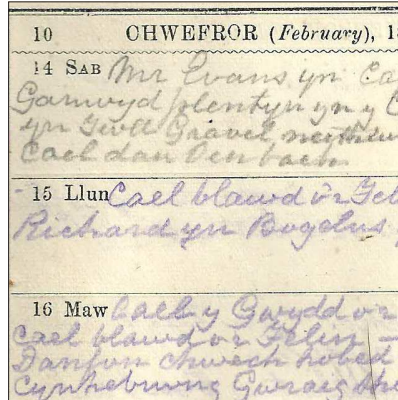 10 CHWEFROR (February), 1
14 SAB Mr Evans yn Ca
Ganwyd plentyn yn y
yn Twll Gravel neithiw
Cael dau Oen bach
15 Llun Cael blawd o'r Fel
Richard yn Bogelus
16 Maw Cael y Gwydd o'r
Cael blawd o'r Felin —
Danfon chwech hobed
Cynhebrwng Gwraig